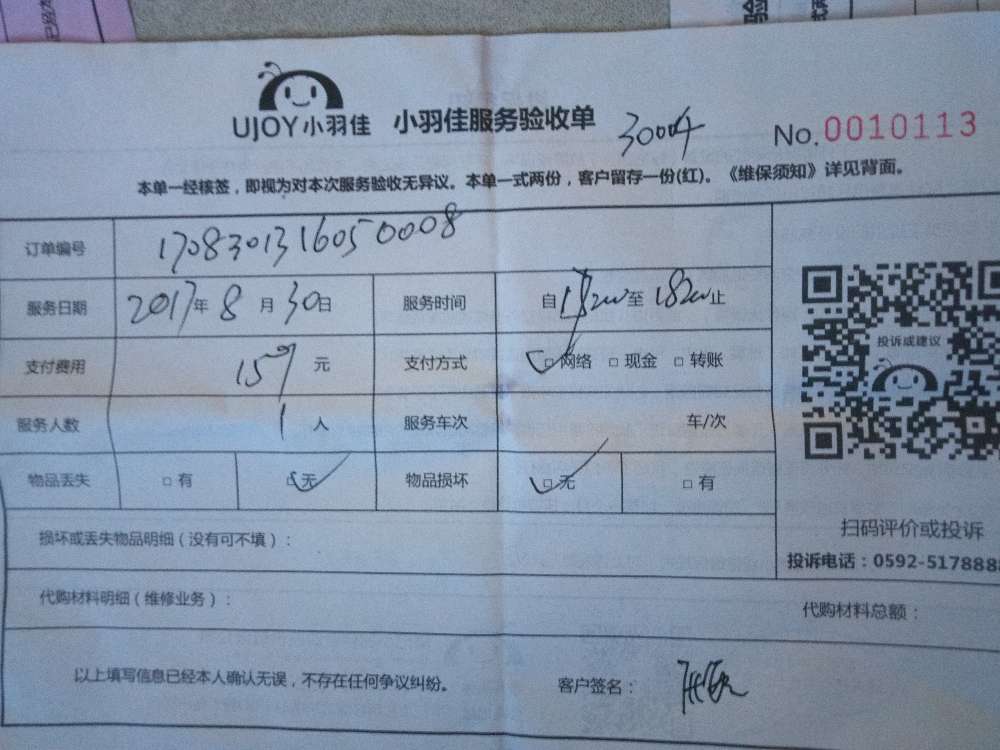 UJOY小羽佳 小羽佳服务验收单 3004 No.0010113
本单一经核签，即视为对本次服务验收无异议。本单一式两份，客户留存一份(红)。《维保须知》详见背面。
订单编号 170830131605 0008
服务日期 2017年 8 月 30日 服务时间 自 至 1820止
支付费用 159 元 支付方式 网络 □ 现金 □ 转账
服务人数 1 人 服务车次 车/次
物品丢失 □ 有 □无 物品损坏 □无 □ 有
投诉或建议
扫码评价或投诉
投诉电话：0592-517888
损坏或丢失物品明细（没有可不填）：
代购材料明细（维修业务）： 代购材料总额：
以上填写信息已经本人确认无误，不存在任何争议纠纷。 客户签名：